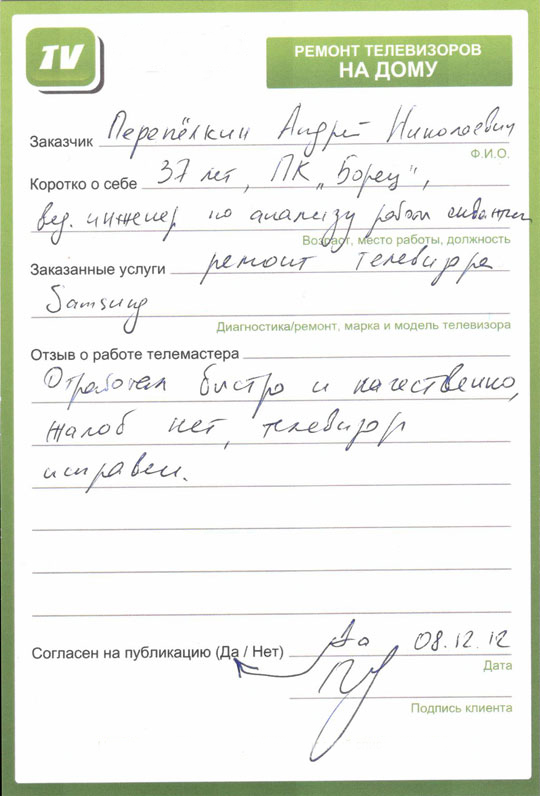 TV
РЕМОНТ ТЕЛЕВИЗОРОВ
НА ДОМУ
Заказчик Перепёлкин Андрей Николаевич
Ф.И.О.
Коротко о себе 37 лет, ПК „Борец",
вед. инженер по анализу работы скважин
Возраст, место работы, должность
Заказанные услуги ремонт телевизора
Samsung
Диагностика/ремонт, марка и модель телевизора
Отзыв о работе телемастера
Отработал быстро и качественно,
жалоб нет, телевизор
исправен.
Согласен на публикацию (Да / Нет) Да 08.12.12
Дата
Подпись клиента